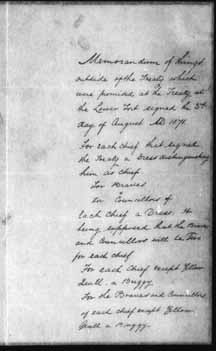 Memorandum of things
outside of the Treaty which
were promised at the Treaty at
the Lower Fort signed the 3rd
day of August AD 1871.
For each chief that signed
the treaty a Dress distinguishing
him as chief
For Braves
or Councillors of
each chief a Dress. It
being supposed that the Braves
and Councillors will be two
for each chief
For each chief except Yellow
Quill. a Buggy.
For the Braves and Councillors
of each chief except Yellow
Quill a Buggy.